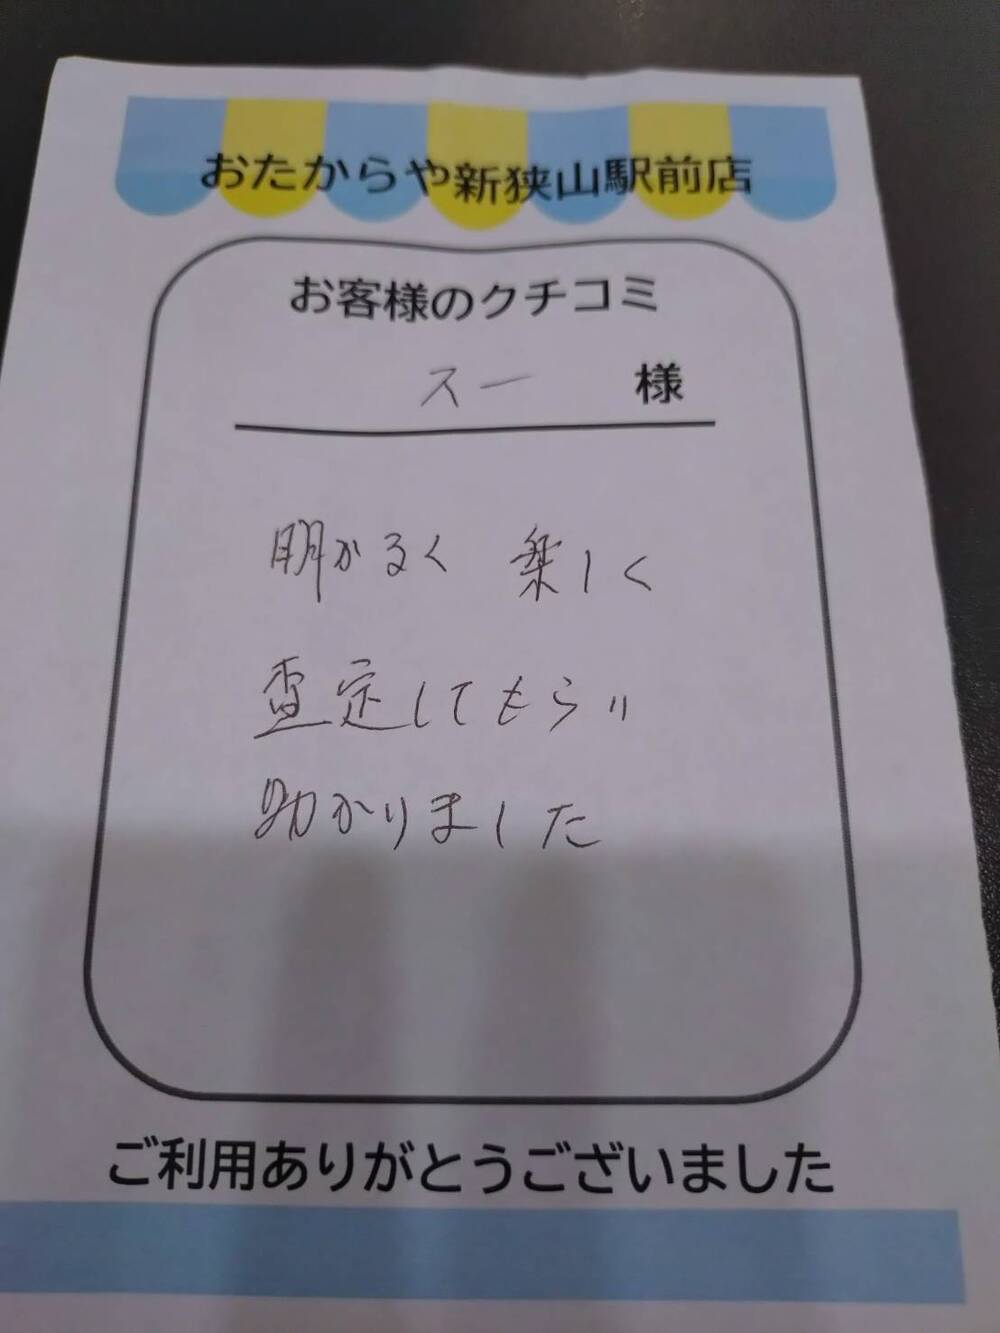 おたからや新狭山駅前店
お客様のクチコミ
スー 様
明かるく 楽しく
査定してもらい
助かりました
ご利用ありがとうございました